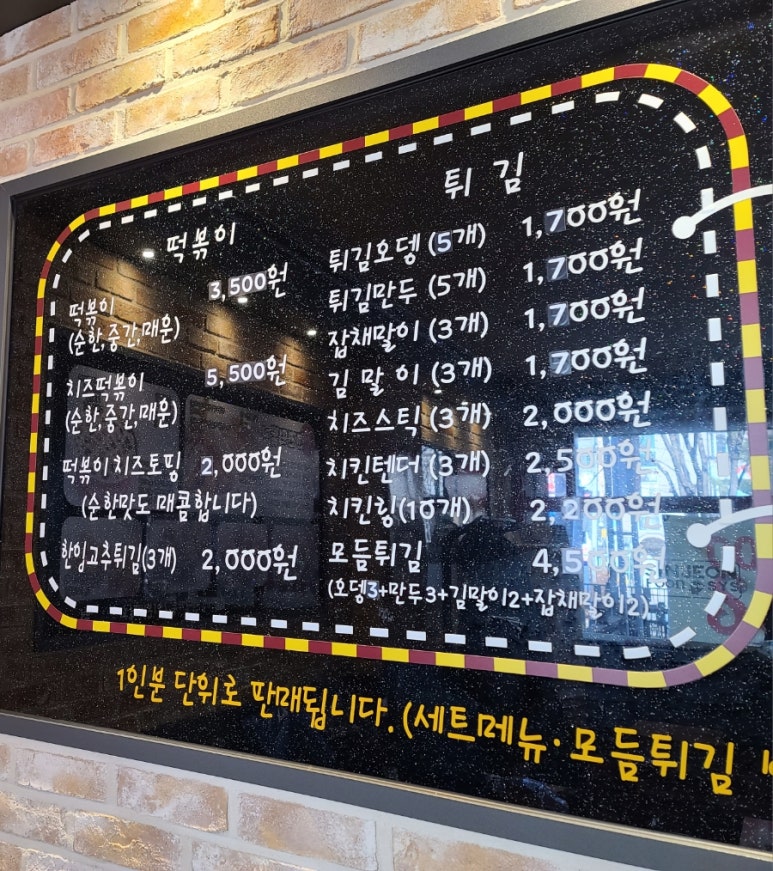 떡볶이
떡볶이 3,500원
(순한,중간,매훈)
치즈떡볶이 5,500원
(순한,중간,매훈)
떡볶이 치즈토핑 2,000원
(순한맛도 매콤합니다)
한입고추튀김(3개) 2,000원
튀 김
튀김오뎅 (5개) 1,700원
튀김만두 (5개) 1,700원
잡채말이 (3개) 1,700원
김 말 이 (3개) 1,700원
치즈스틱 (3개) 2,000원
치킨텐더 (3개) 2,500원
치킨링(10개) 2,200원
모듬튀김 4,500원
(오뎅3+만두3+김말이2+잡채말이2)
1인분 단위로 판매됩니다. (세트메뉴·모듬튀김